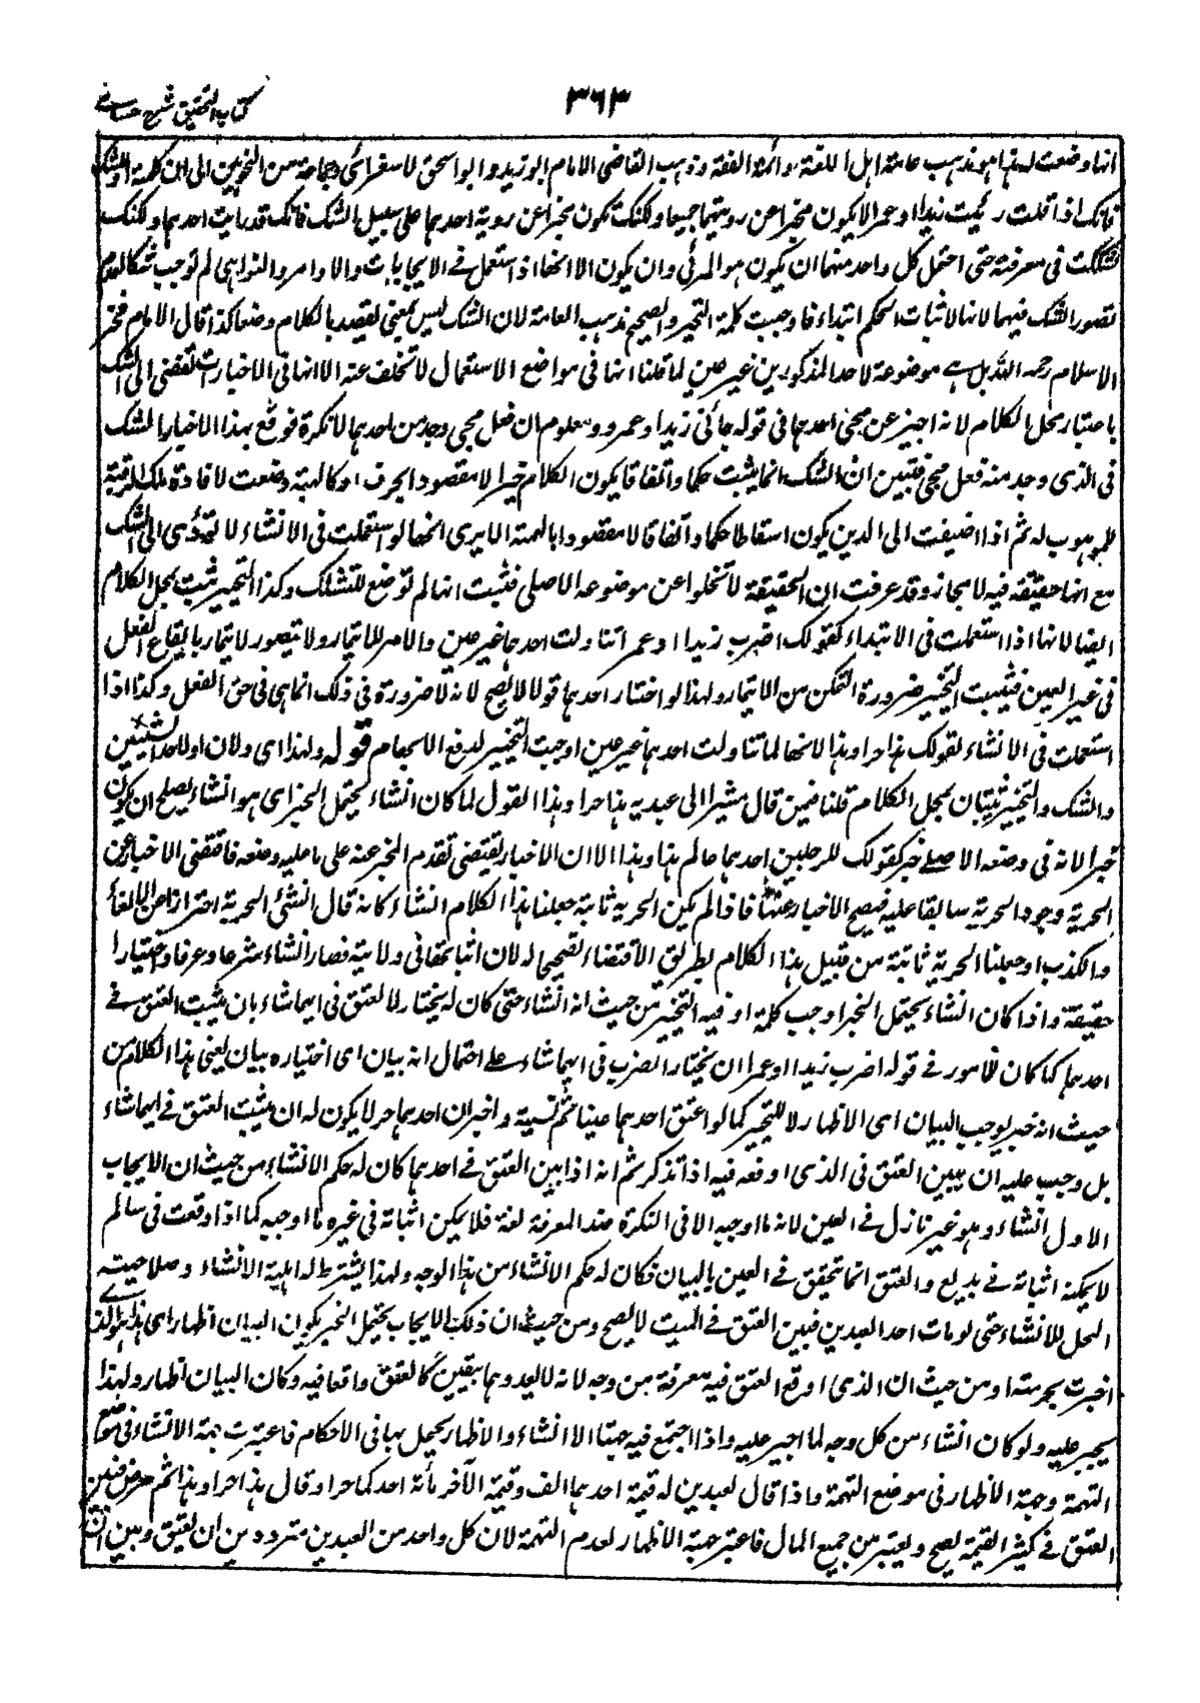 كتاب التحقيق شرح حسامي
٣٦٣
انها وضعت لهذا هو مذهب عامة اهل اللغة وائمة الفقه وذهب القاضي الامام ابو زيد وابو اسحق لاسفرائي وجماعة من النحويين الى ان كلمة او للشك
فانك اذا قلت رئيت زيدا او عمرا لا يكون مخبرا عن رويتهما جميعا ولكنك تكون مخبرا عن روية احدهما على سبيل الشك فانك قد رايت احدهما ولكنك
شككت في معرفته حتى احتمل كل واحد منهما ان يكون هو المرئي وان يكون الا انها اذا استعمل في الايجابات والاوامر والنواهي لم توجب شكا لعدم
تصور الشك فيها لانها لاثبات الحكم ابتداء فاوجبت كلمة التخير والصحيح مذهب العامة لان الشك ليس بمعنى يقصد بالكلام وضعا كذا قال الامام فخر
الاسلام رحمه الله بل هي موضوعة لاحد المذكورين غير عين لما قلنا انها في مواضع الاستعمال لا تخلف عنه الا انها في الاخبارات تفضي الى الشك
باعتبار محل الكلام لانه اخبر عن مجئ احدهما في قوله جائني زيد او عمرو ومعلوم ان فعل مجئ وجد من احدهما لا نكرة فوقع بهذا الاخبار الشك
في الذي وجد منه فعل مجئ فتبين ان الشك انما يثبت حكما واتفاقا بكون الكلام خبرا لا مقصودا بحرف او كالهبة وضعت لافادة ملك الرقبة
للموهوب له ثم اذا اضيفت الى الدين يكون اسقاطا حكما واتفاقا لا مقصودا بالهبة الا يرى انها لو استعملت في الانشاء لا تؤدى الى الشك
مع انها حقيقة فيه لا مجاز وقد عرفت ان الحقيقة لا تخلوا عن موضوعه الاصلي فثبت انها لم توضع للتشكك وكذا التخير يثبت بمحل الكلام
ايضا لانها اذا استعملت في الابتداء كقولك اضرب زيدا او عمرا تناولت احدهما غير عين والامر للايتمار ولا يتصور لايتمار بايقاع الفعل
في غير العين فثبت التخير ضرورة التمكن من الايتمار ولهذا لو اختار احدهما قولا لا يصح لانه لا ضرورة في ذلك انما هي في حق الفعل وكذا اذا
استعملت في الانشاء كقولك هذا حر او هذا لانها لما تناولت احدهما غير عين اوجبت التخيير لدفع الابهام قوله ولهذا اى ولان او لاحد الشيئين
والشك والتخير يثبتان بمحل الكلام قلنا فيمن قال مشيرا الى عبديه هذا حر او هذا القول لما كان انشاء يحتمل الخبر اى هو انشاء يصلح ان يكون
خبرا لانه في وضعه الاصلي خبر كقولك للرجلين احدهما عالم هذا وهذا الا ان الاخبار يقتضى تقدم المخبر عنه على ما عليه وضعه فاقتضى الاخبار عن
الحرية وجود الحرية سابقا عليه فيصح الاخبار عنها فاذا لم يكن الحرية ثابتة جعلنا هذا الكلام انشاء كانه قال انشئ الحرية احترازا عن الالغاء
والكذب او جعلنا الحرية ثابتة من قبيل هذا الكلام بطريق الاقتضاء تصحيحا له لان اثباتها في ولايته فصار انشاء شرعا وعرفا واخبارا
حقيقة واذا كان انشاء يحتمل الخبر اوجب كلمة او فيه التخير من حيث انه انشاء حتى كان له يختار العتق في ايهما شاء بان يثبت العتق في
احدهما كما كان للمامور في قوله اضرب زيدا او عمرا ان يختار الضرب في ايهما شاء على احتمال انه بيان اى اختياره بيان يعني هذا الكلام من
حيث انه خبر يوجب البيان اى الاظهار لا للتخير كما لو اعتق احدهما عينا ثم نسيه واخبر ان احدهما حر لا يكون له ان يثبت العتق في ايهما شاء
بل وجب عليه ان يبين العتق في الذى اوقعه فيه اذا تذكر ثم انه اذا بين العتق في احدهما كان له حكم الانشاء من حيث ان الايجاب
الاول انشاء وهو غير نازل في العين لانه ما اوجبه الا في النكرة ضد المعرفة لغة فلا يمكن اثباته في غيره ما اوجبه كما اذا اوقعت في سالم
لا يمكنه اثباته في بديع والعتق انما تحقق في العين بالبيان فكان له حكم الانشاء من هذا الوجه ولهذا يشترط له اهلية الانشاء وصلاحيته
المحل للانشاء حتى لو مات احد العبدين فبين العتق في الميت لا يصح ومن حيث ان ذلك الايجاب يحتمل الخبر يكون البيان اظهارا اى هذا هو الذى
اخبرت بحريته او من حيث ان الذى اوقع العتق فيه معرفة من وجه لانه لا يعدوهما بيقين كالعتق واقعا فيه وكان البيان اظهارا ولهذا
يجبر عليه ولو كان انشاء من كل وجه لما اجبر عليه واذا اجتمع فيه جهتا الانشاء والاظهار يعمل بها في الاحكام فاعتبرت جهة الانشاء في موضع
التهمة وجهة الاظهار في موضع التهمة واذا قال لعبدين له قيمة احدهما الف وقيمة الآخر مأته احدكما حر او قال هذا حر او هذا ثم مرض فبين
العتق في كثير القيمة يصح ويعتبر من جميع المال فاعتبر جهة الاظهار لعدم التهمة لان كل واحد من العبدين متردد بين ان يعتق وبين ان